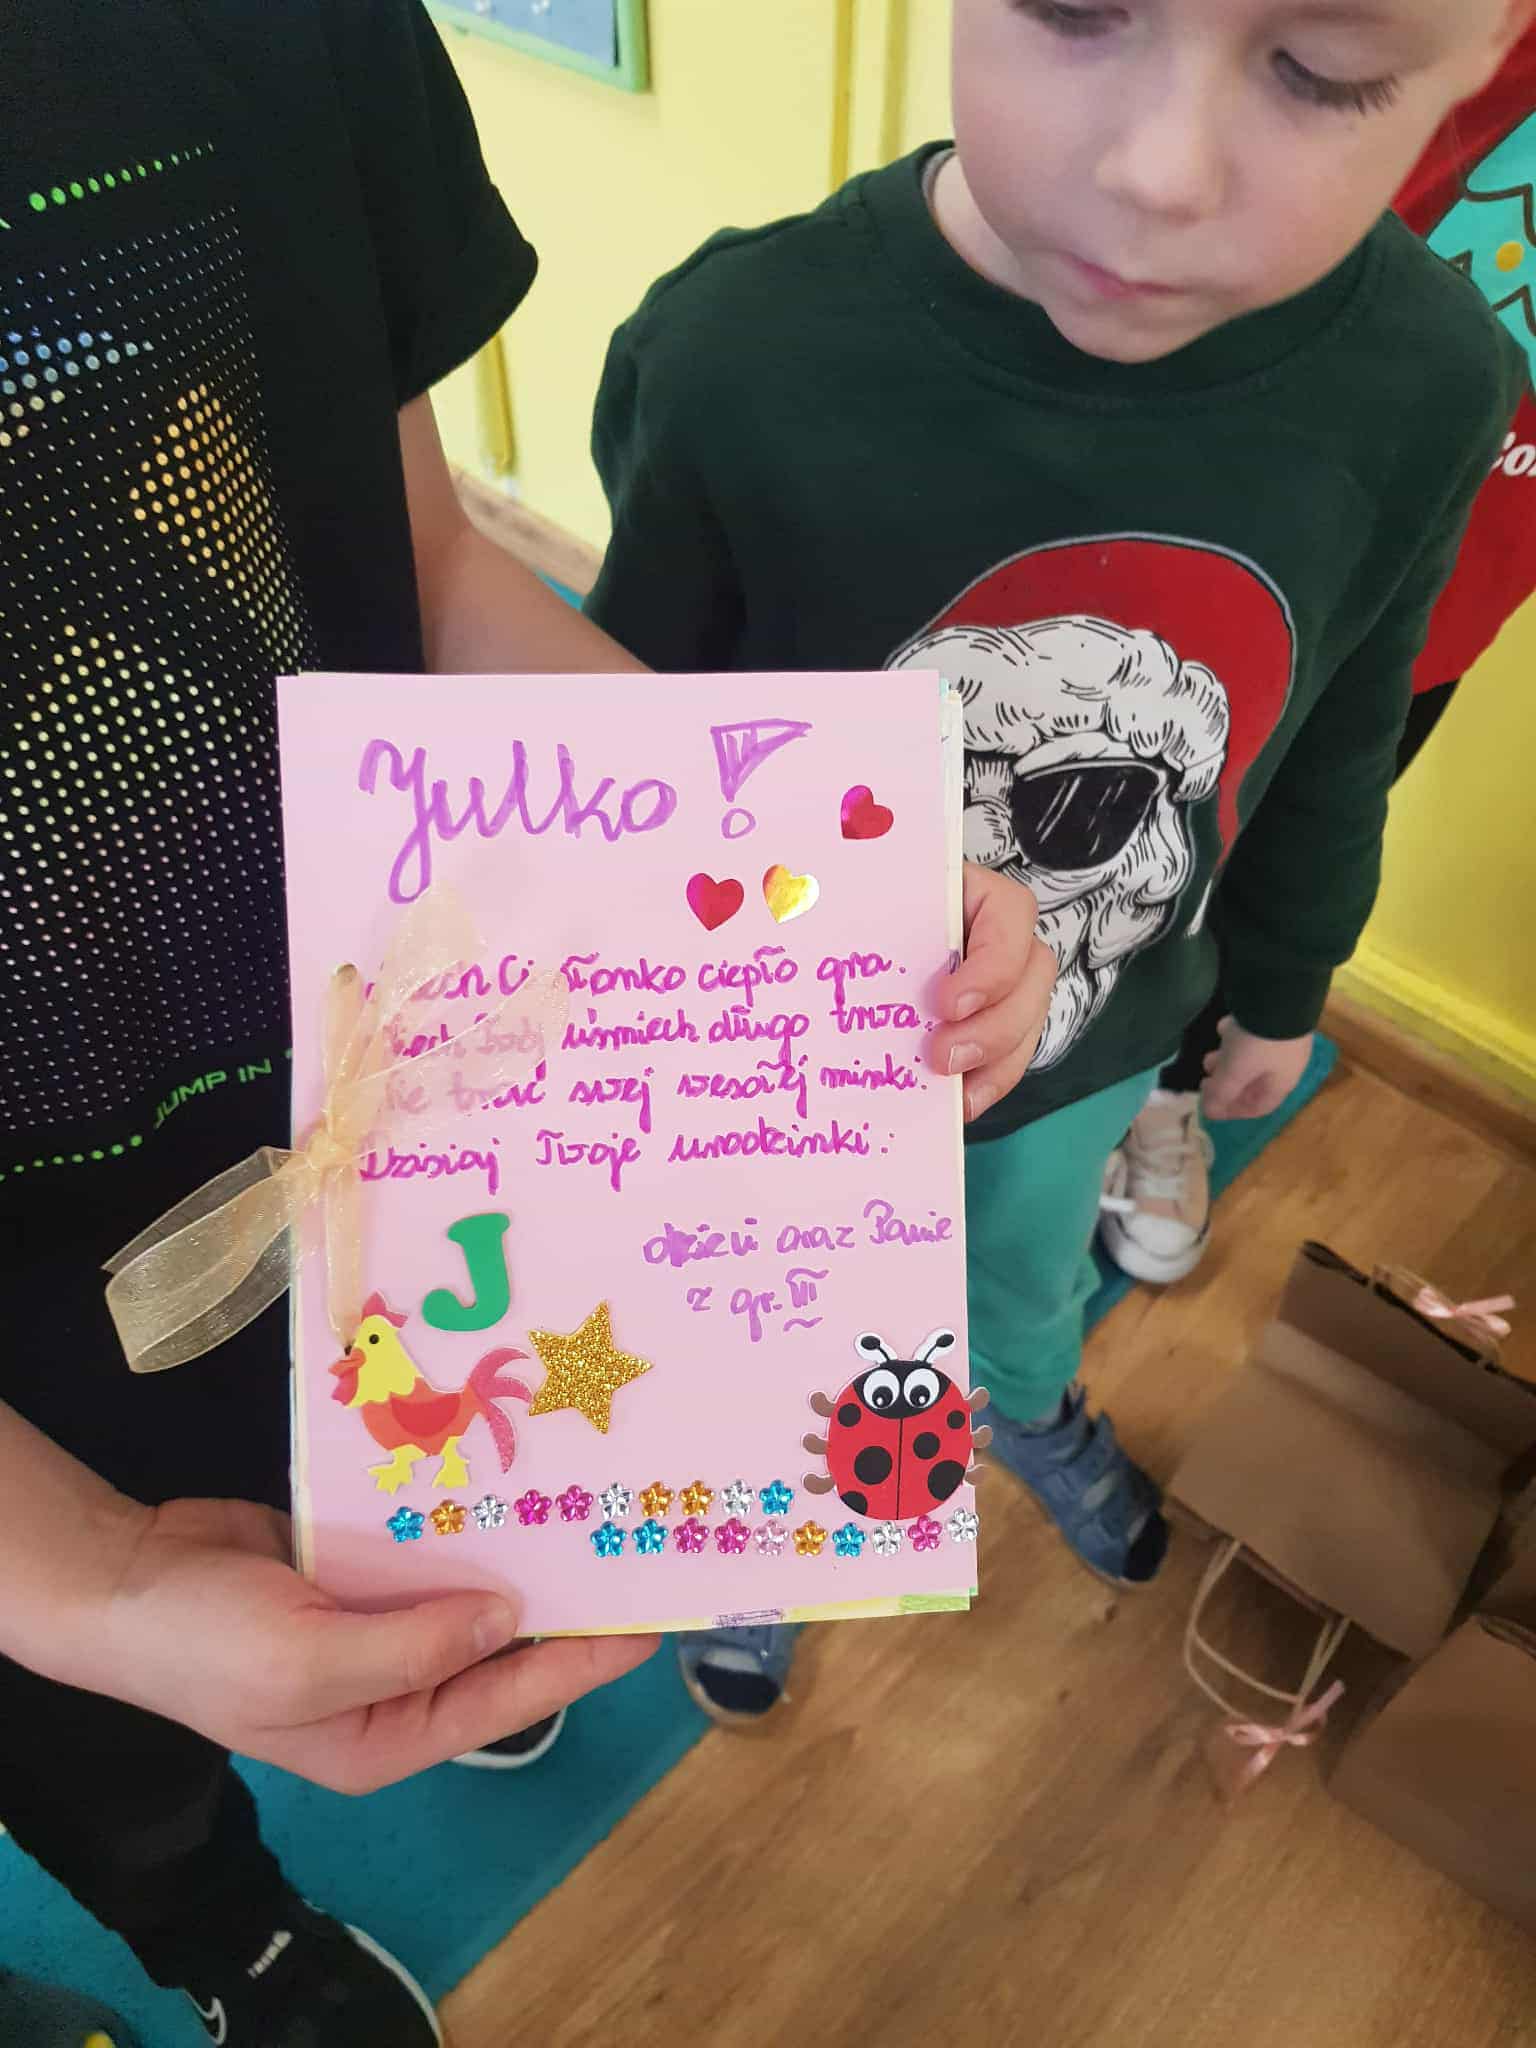 Julko!
Niech Ci słonko ciepło gra.
Niech Twój uśmiech długo trwa.
Nie trać swej wesołej minki.
Dzisiaj Twoje urodzinki.
dzieci oraz Panie
z gr. III
J
JUMP IN